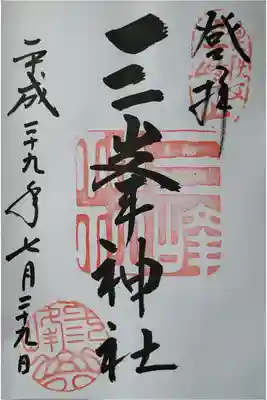 登拝
三峯神社
平成二十九年七月二十九日